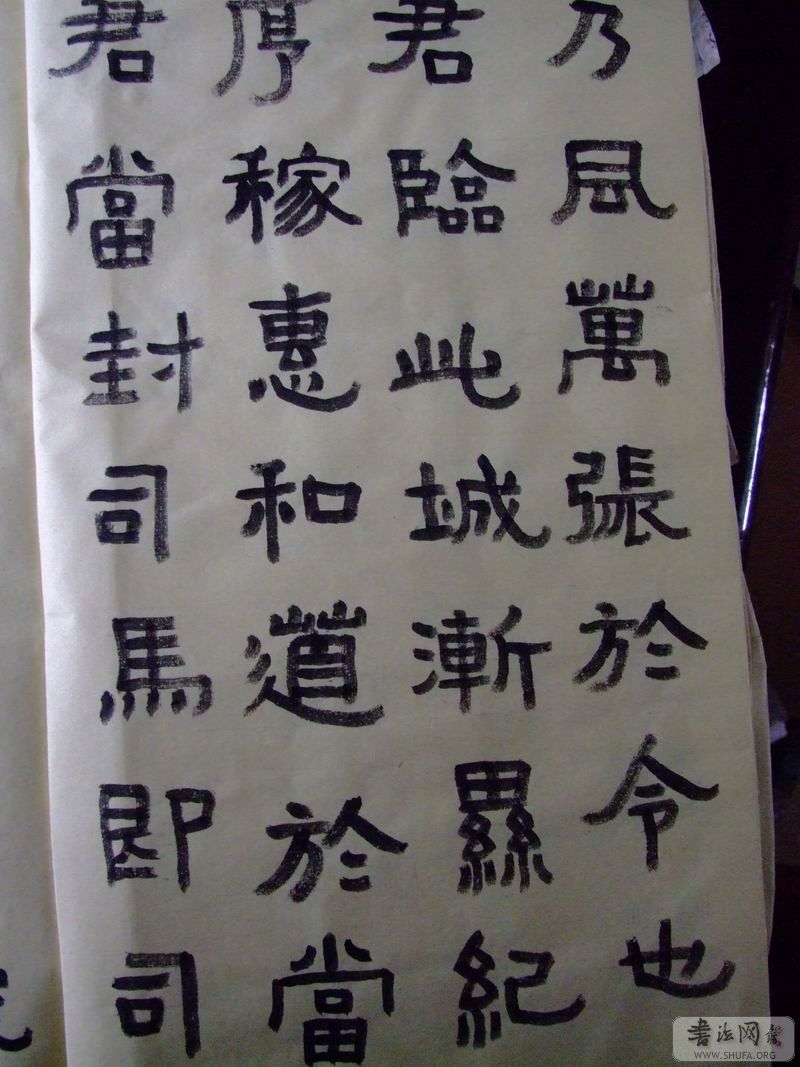 乃風萬張於令也
君臨此城漸纍紀
序稼惠和道於當
君當封司馬即司
書法网
WWW.SHUFA.ORG